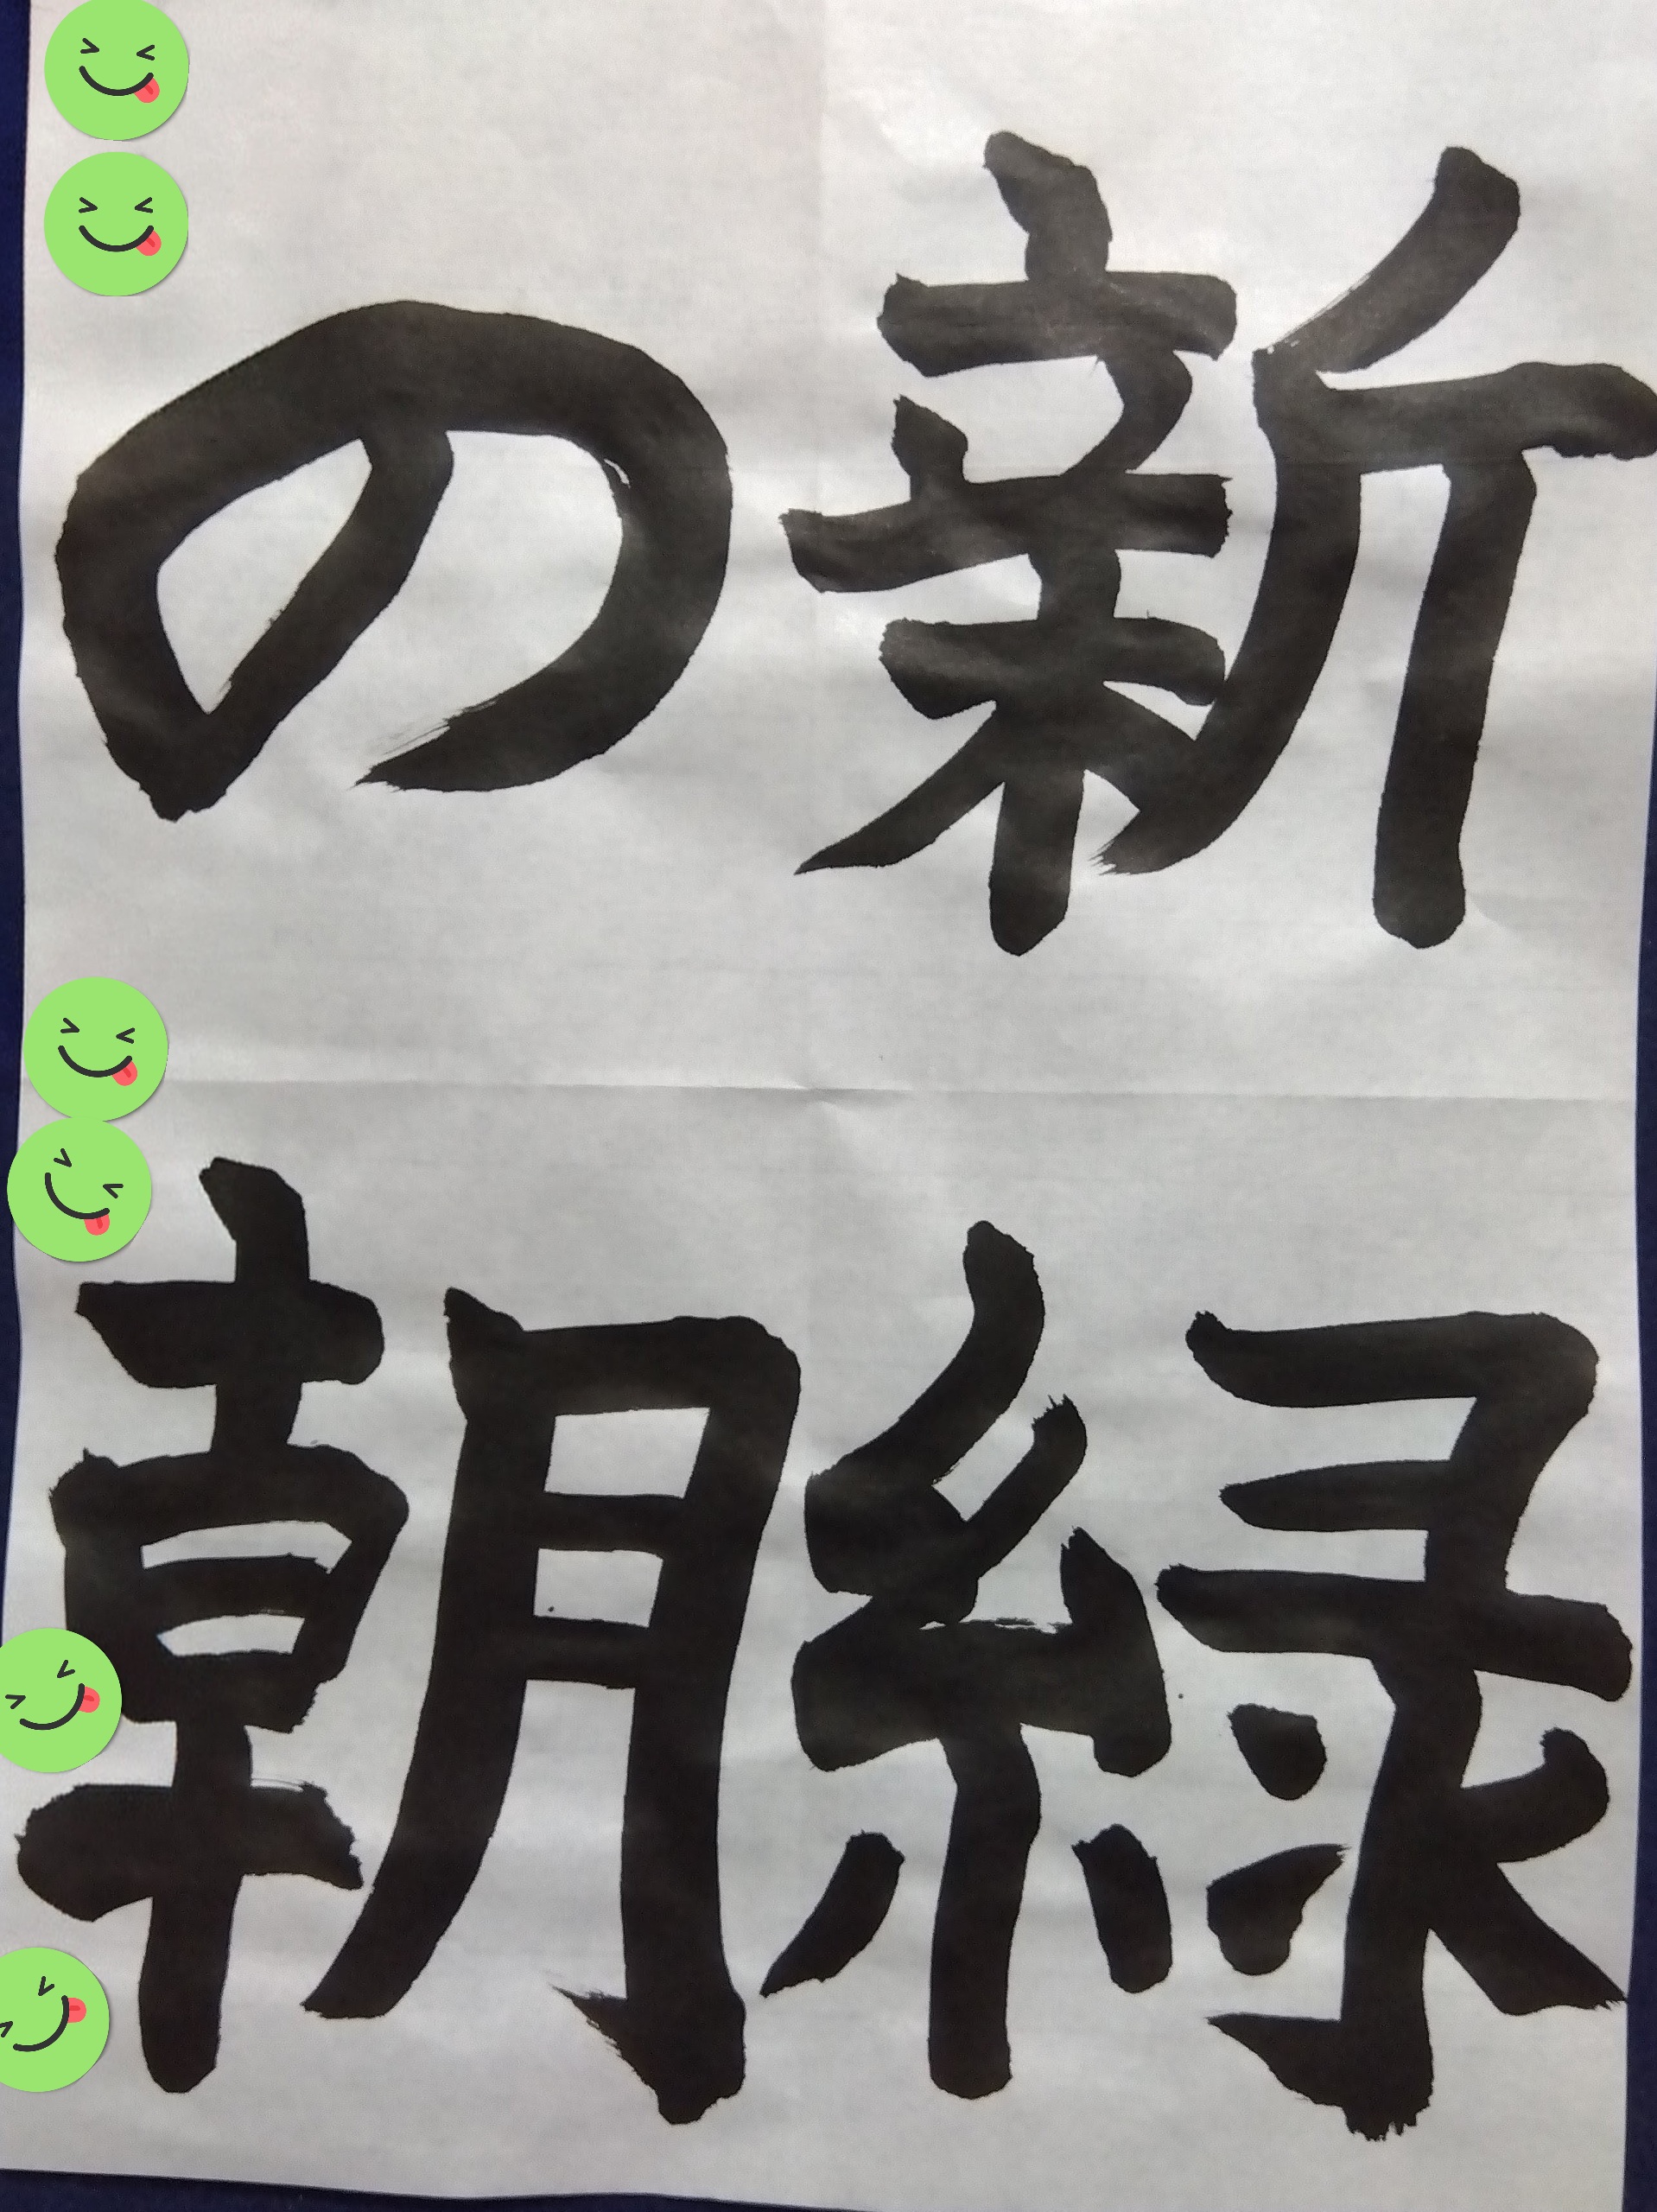 新緑
の朝